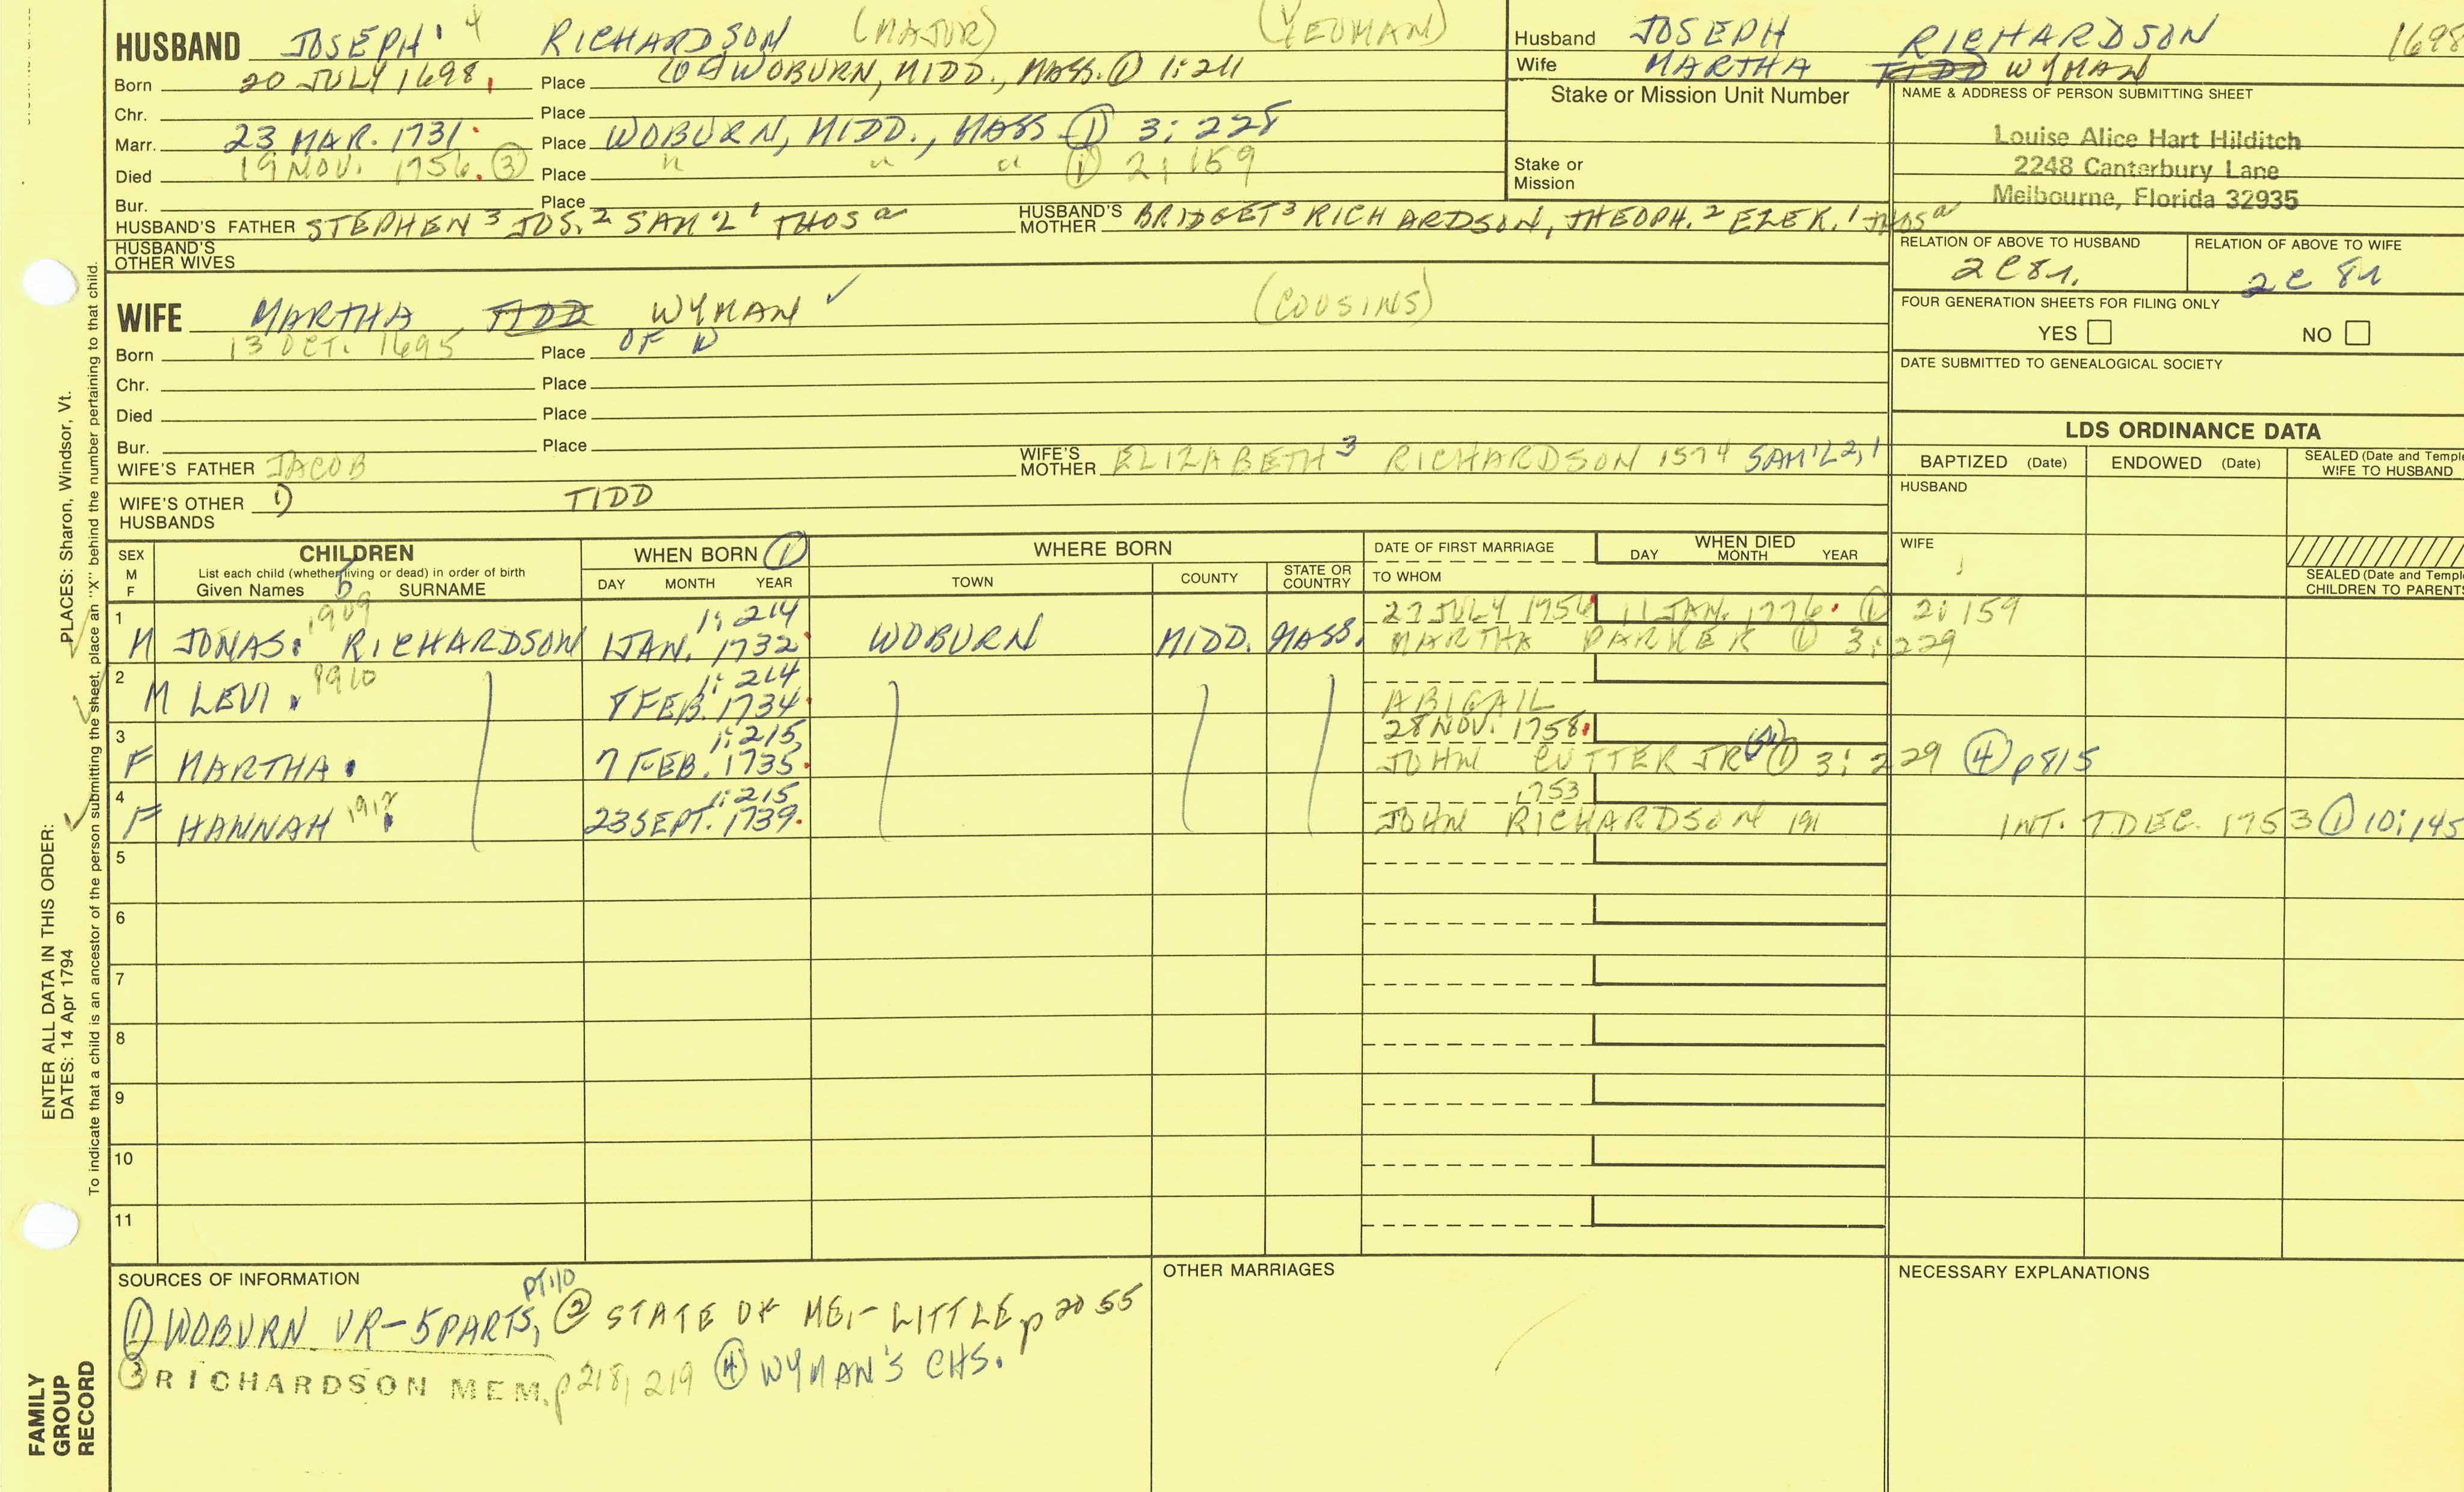 HUSBAND JOSEPH 4 RICHARDSON (MAJOR) (YEOMAN)
Born 20 JULY 1698 Place WOBURN, MIDD., MASS. ① 1:211
Chr. Place
Marr. 23 MAR. 1731 Place WOBURN, MIDD., MASS ① 3:228
Died 19 NOV. 1756. ③ Place " " " ① 2:159
Bur. Place
HUSBAND'S FATHER STEPHEN 3 JOS. 2 SAM'L 1 THOS a HUSBAND'S MOTHER BRIDGET 3 RICHARDSON, THEOPH. 2 EZEK. 1 THOS a
HUSBAND'S OTHER WIVES
Husband JOSEPH RICHARDSON 1698
Wife MARTHA TIDD WYMAN
Stake or Mission Unit Number
Stake or Mission
NAME & ADDRESS OF PERSON SUBMITTING SHEET
Louise Alice Hart Hilditch
2248 Canterbury Lane
Melbourne, Florida 32935
RELATION OF ABOVE TO HUSBAND RELATION OF ABOVE TO WIFE
2C 8r. 2C 8r
FOUR GENERATION SHEETS FOR FILING ONLY
YES NO
DATE SUBMITTED TO GENEALOGICAL SOCIETY
WIFE MARTHA TIDD WYMAN ✓ (COUSINS)
Born 13 OCT. 1695 Place OF W
Chr. Place
Died Place
Bur. Place
WIFE'S FATHER JACOB WIFE'S MOTHER ELIZABETH 3 RICHARDSON 1574 SAM'L 2,1
WIFE'S OTHER HUSBANDS 1) TIDD
LDS ORDINANCE DATA
BAPTIZED (Date) ENDOWED (Date) SEALED (Date and Temple WIFE TO HUSBAND
HUSBAND
WIFE
SEALED (Date and Temple CHILDREN TO PARENTS
SEX M F
CHILDREN
List each child (whether living or dead) in order of birth
Given Names 5 SURNAME
WHEN BORN ①
DAY MONTH YEAR
WHERE BORN
TOWN COUNTY STATE OR COUNTRY
DATE OF FIRST MARRIAGE
TO WHOM
WHEN DIED
DAY MONTH YEAR
1 1909 1:214 27 JULY 1756 11 JAN. 1776 ① 2:159
M JONAS RICHARDSON 1 JAN. 1732 WOBURN MIDD. MASS. MARTHA PARKER ① 3:229
2 1910 1:214
M LEVI 8 FEB. 1734 ABIGAIL
3 1:215 28 NOV. 1758
F MARTHA 7 FEB. 1735 JOHN CUTTER JR ① 3:229 ④ p815
4 1:215 1753
F HANNAH 1912 23 SEPT. 1739 JOHN RICHARDSON 191 INT. 7 DEC. 1753 ① 10:145
5
6
7
8
9
10
11
SOURCES OF INFORMATION
① WOBURN VR-5 PARTS, PT. 10 ② STATE OF ME,- LITTLE p 2055
③ RICHARDSON MEM. p 218, 219 ④ WYMAN'S CHS.
OTHER MARRIAGES
NECESSARY EXPLANATIONS
ENTER ALL DATA IN THIS ORDER:
DATES: 14 Apr 1794 PLACES: Sharon, Windsor, Vt.
To indicate that a child is an ancestor of the person submitting the sheet, place an "X" behind the number pertaining to that child.
FAMILY
GROUP
RECORD